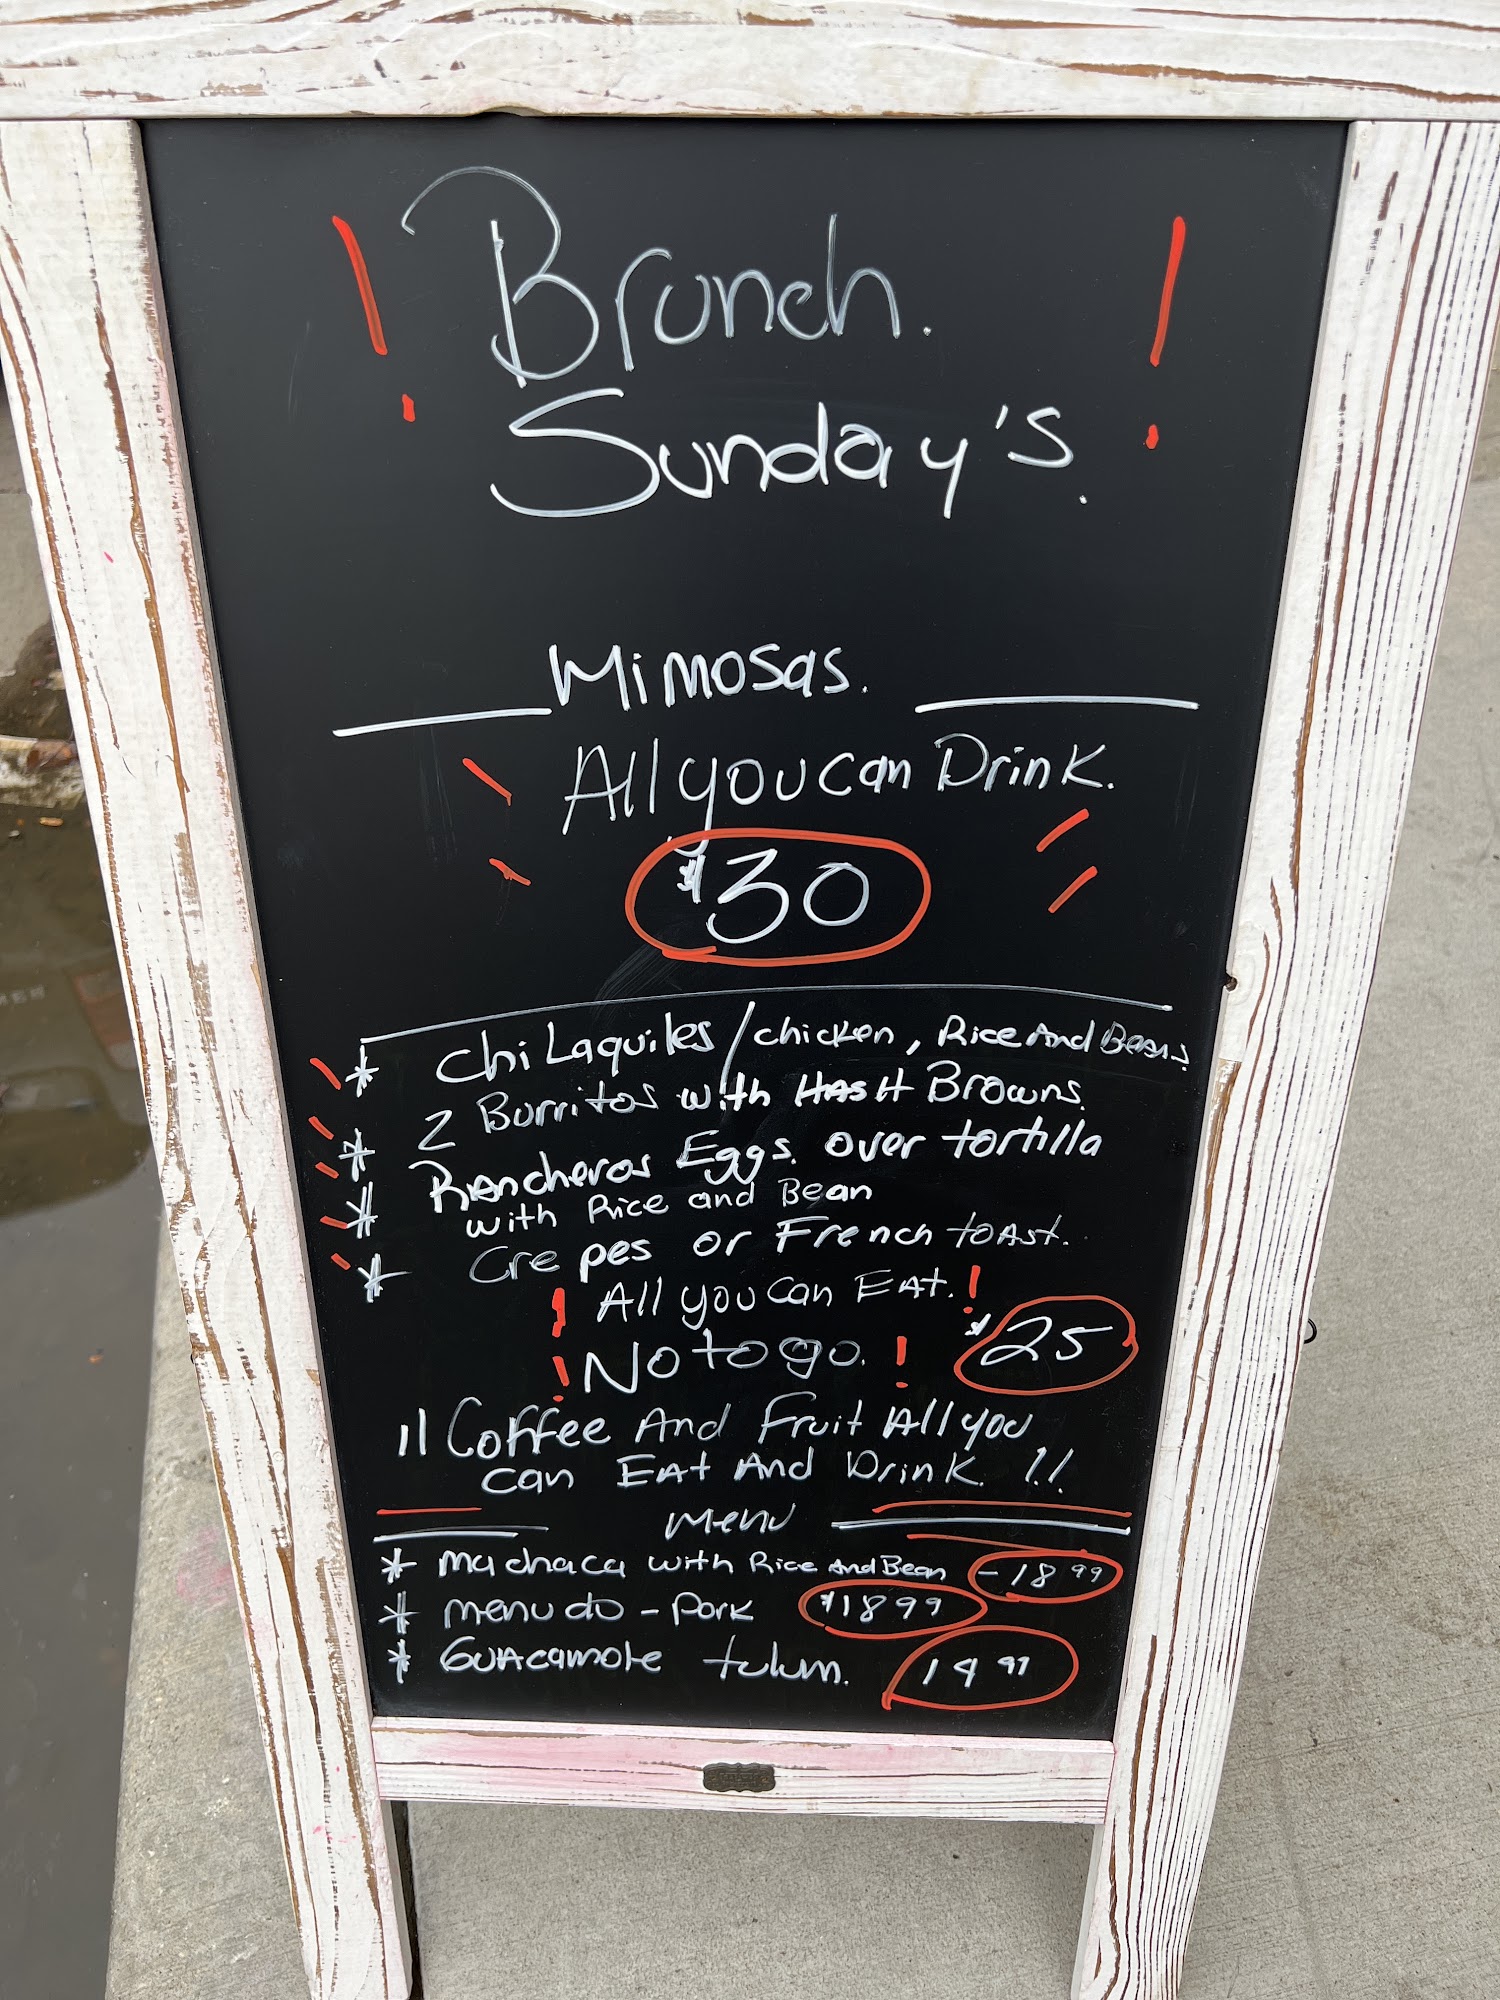 ! Brunch. !
Sunday's.
Mimosas.
All you can Drink.
$30
* Chilaquiles / chicken, Rice And Beans
* 2 Burritos with HASH Browns.
* Rancheros Eggs. over tortilla
with Rice and Bean
* Crepes or French toAst.
! All you can EAt. !
! No to go. ! $25
!! Coffee And Fruit All you
can EAt And Drink. !!
Menu
* machaca with Rice And Bean - 18 99
* menudo - Pork $18 99
* GuAcamole tulum. 14 99